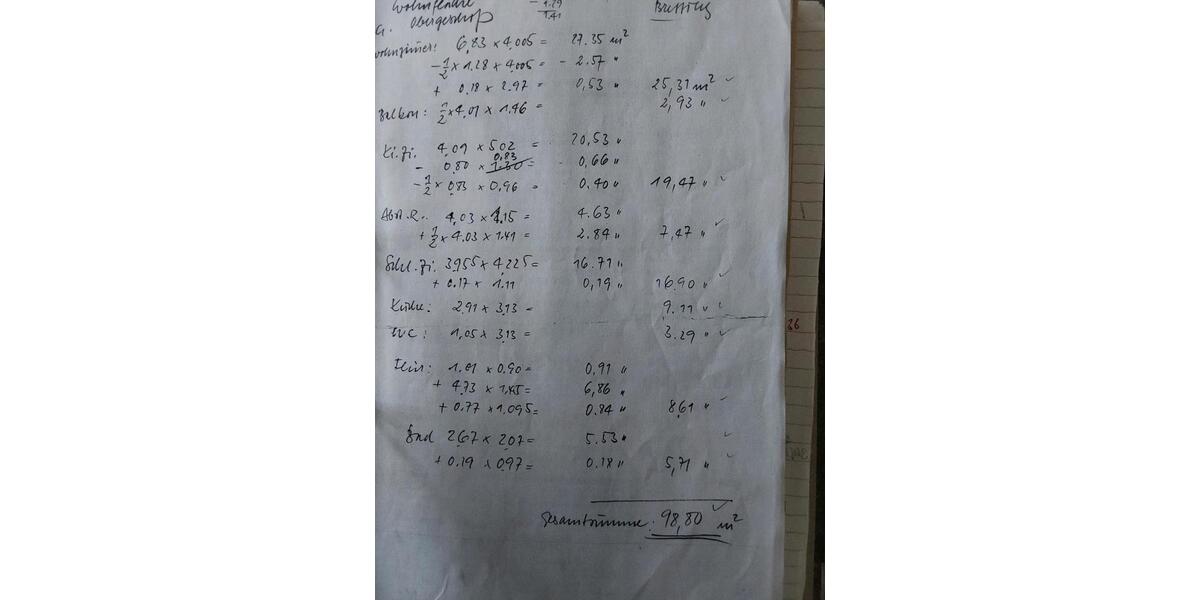 Wohnfläche - 1.29
a. Obergeschoß 1.41
Wohnzimmer: 6,83 x 4,005 = 27.35 m²
- 1/2 x 1.28 x 4,005 = - 2.57 "
+ 0.18 x 2.97 = 0,53 " 25,31 m² ✓
Balkon: 1/2 x 4,01 x 1.46 = 2,93 " ✓
Ki.Zi. 4,09 x 5,02 = 20,53 "
- 0,80 x 0,83 = - 0,66 "
- 1/2 x 0,83 x 0,96 = 0.40 " 19,47 " ✓
Abst.R.: 4,03 x 1,15 = 4.63 "
+ 1/2 x 4.03 x 1.41 = 2.84 " 7,47 " ✓
Schl.Zi. 3,955 x 4,225 = 16.71 "
+ 0.17 x 1.11 = 0,19 " 16.90 " ✓
Küche: 2,91 x 3,13 = 9.11 " ✓
WC: 1,05 x 3,13 = 3.29 " ✓
26
1.01 x 0,90 = 0,91 "
+ 4,73 x 1,45 = 6,86 "
+ 0.77 x 1,095 = 0.84 " 8,61 " ✓
Bad 2,67 x 2,07 = 5.53 " ✓
+ 0.19 x 0,97 = 0.18 " 5,71 " ✓
Gesamtsumme: 98,80 m² ✓